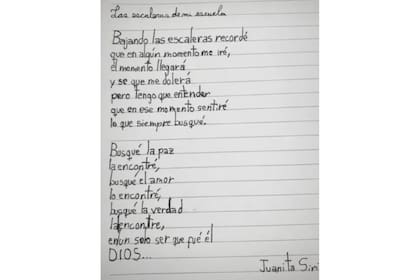 Las escaleras de mi escuela
Bajando las escaleras recordé
que en algún momento me iré,
el momento llegará
y se que me dolerá
pero tengo que entender
que en ese momento sentiré
lo que siempre busqué.
Busqué la paz
la encontré,
busqué el amor
lo encontré,
busqué la verdad
la encontré,
en un solo ser que fué él
DIOS...
Juanita Siri